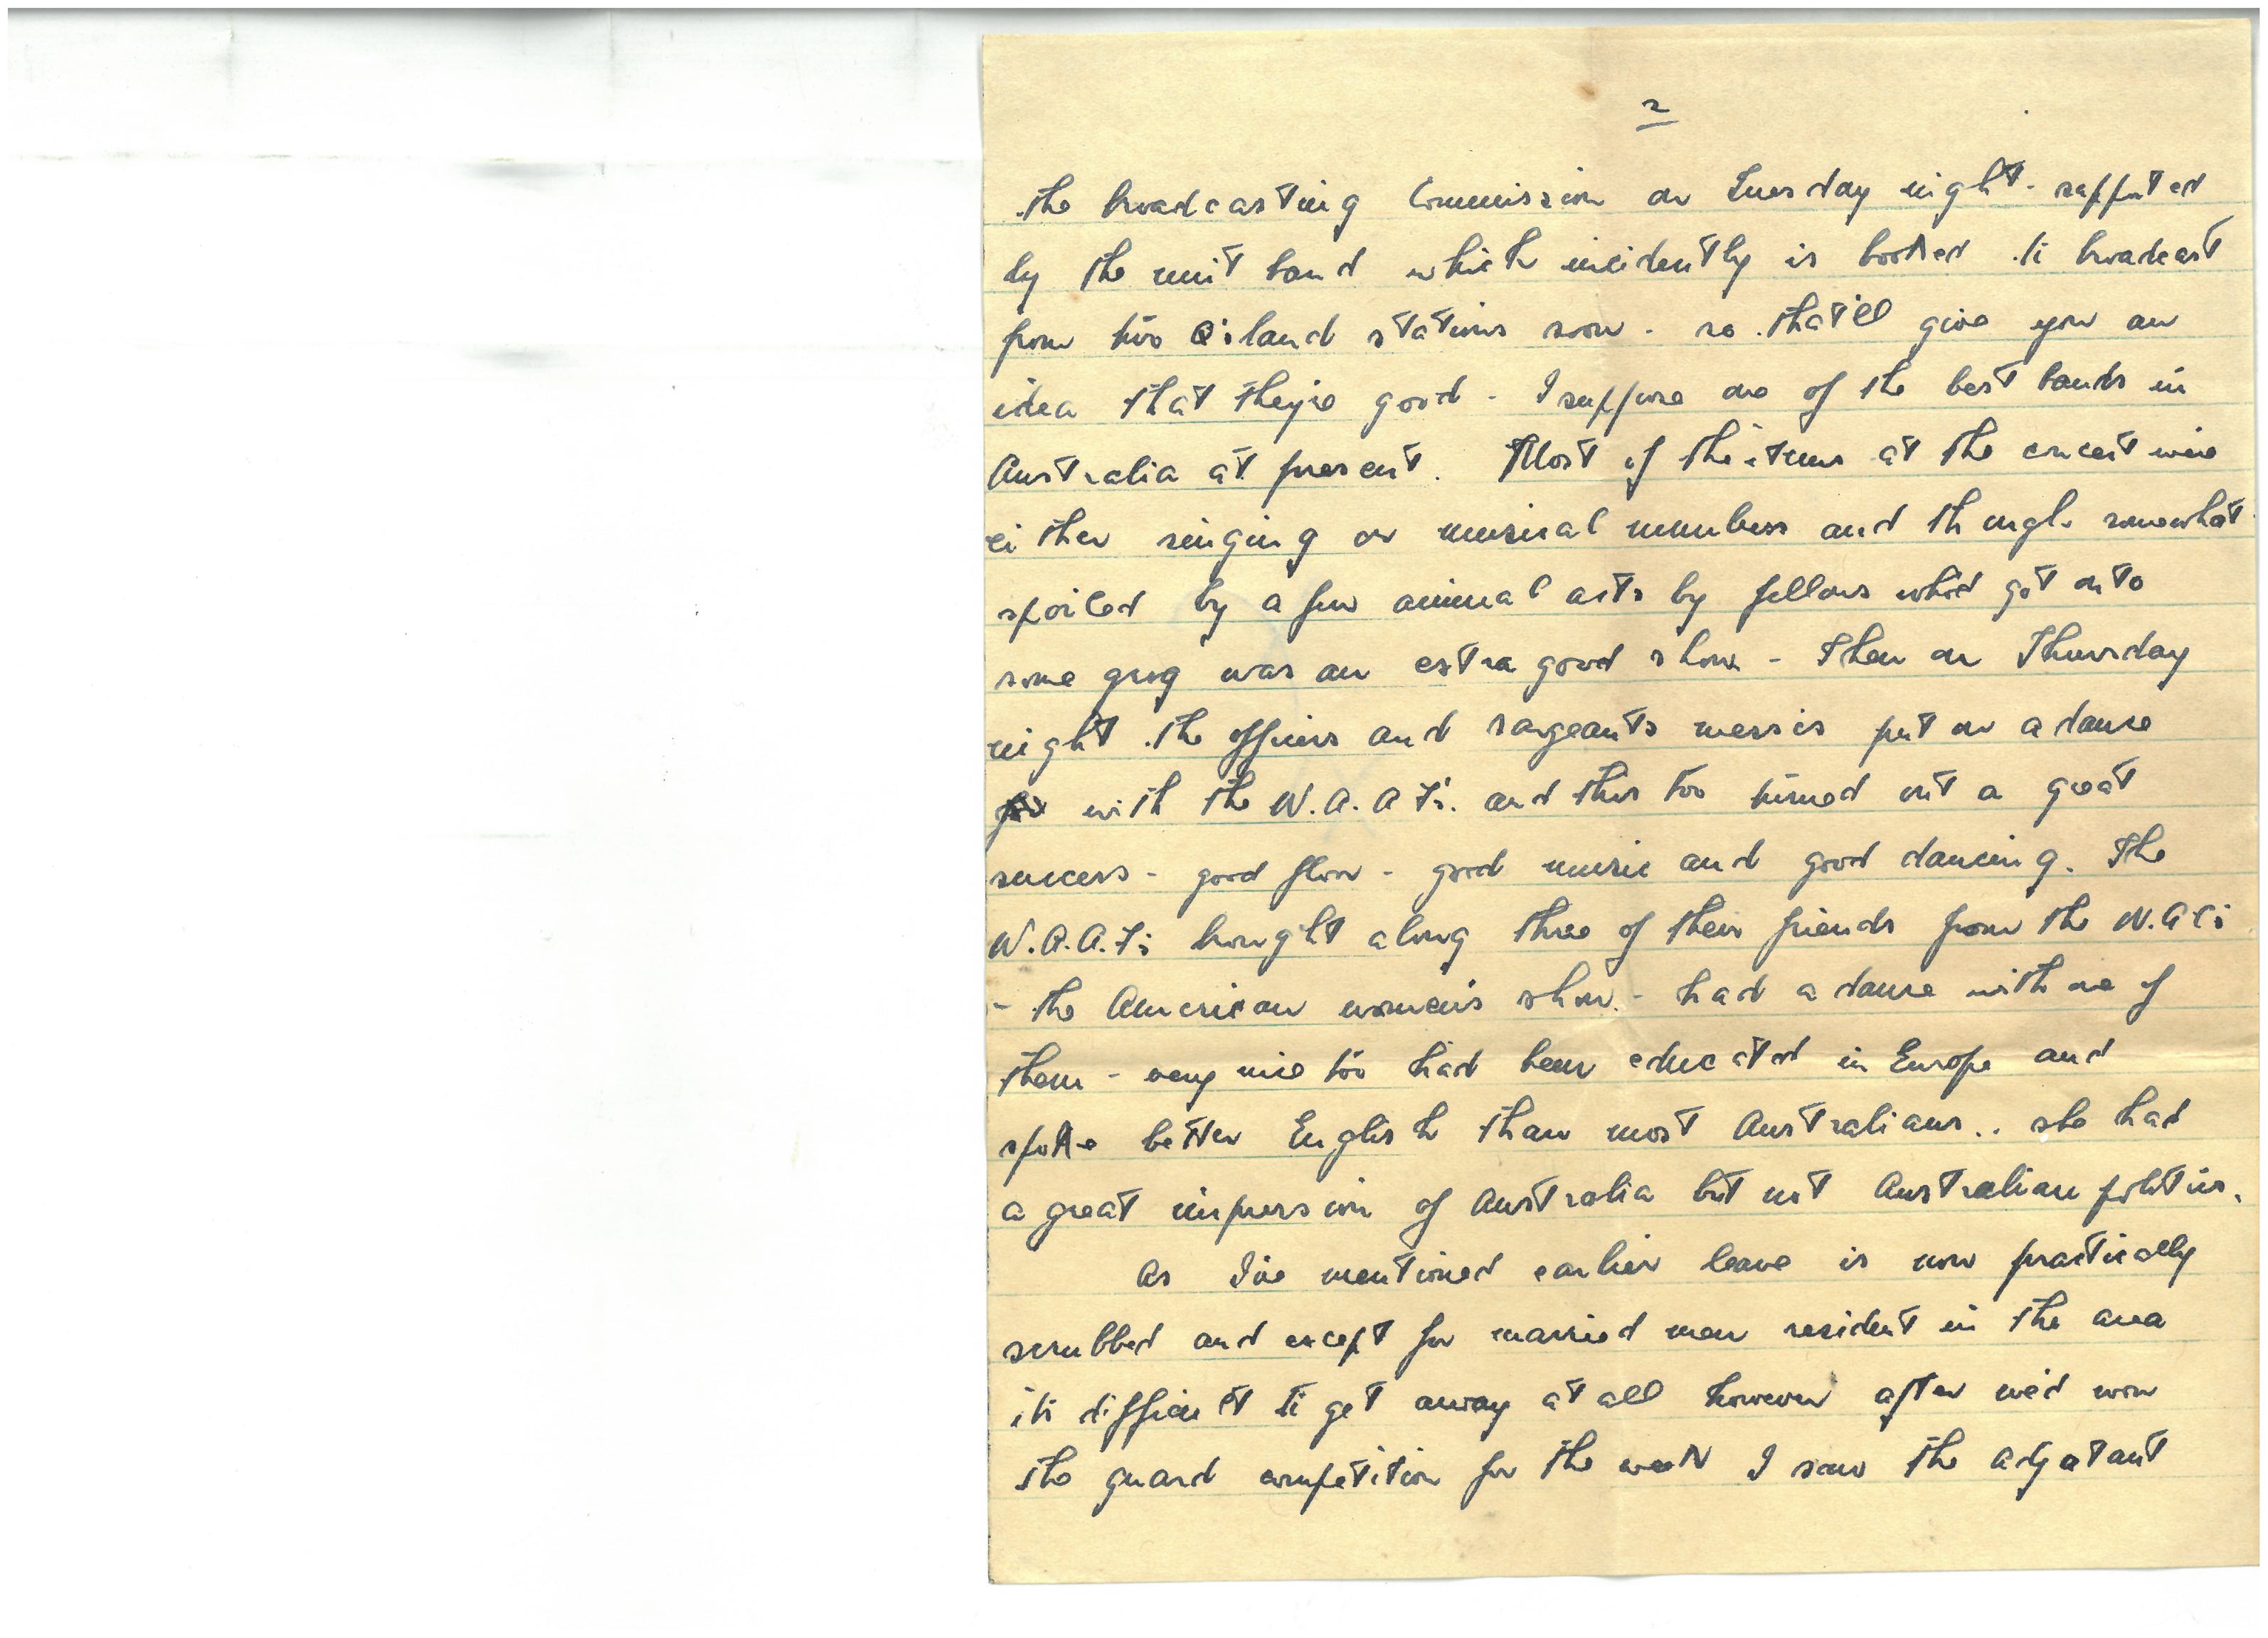 2
the broadcasting Commission on Tuesday night - supported
by the unit band which incidently is booked to broadcast
from two Q'sland stations soon - so that'll give you an
idea that they're good - I suppose one of the best bands in
Australia at present. Most of the items at the concert were
either singing or musical numbers and though somewhat
spoiled by a few animal acts by fellows who'd got onto
some grog was an extra good show - Then on Thursday
night the officers and sargeants messes put on a dance
with the W.A.A.F's. and this too turned out a great
success - good floor - good music and good dancing. The
W.A.A.F's brought along three of their friends from the W.A.C's
- the American women's show - had a dance with one of
them - very nice too had been educated in Europe and
spoke better English than most Australians .. she had
a great impression of Australia but not Australian politics.
As I've mentioned earlier leave is now practically
scrubbed and except for married men resident in the area
it's difficult to get away at all however after we'd won
the guard competition for the week I saw the adjatant